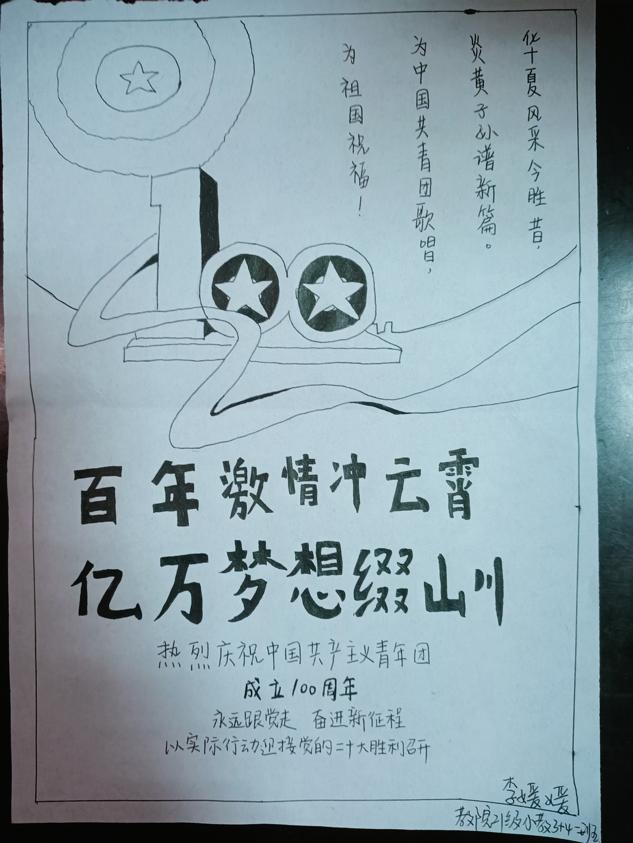 华夏风采今胜昔,
炎黄子孙谱新篇。
为中国共青团歌唱,
为祖国祝福!
百年激情冲云霄
亿万梦想缀山川
热烈庆祝中国共产主义青年团
成立100周年
永远跟党走 奋进新征程
以实际行动迎接党的二十大胜利召开
李媛媛
教院21级小教3+4二班